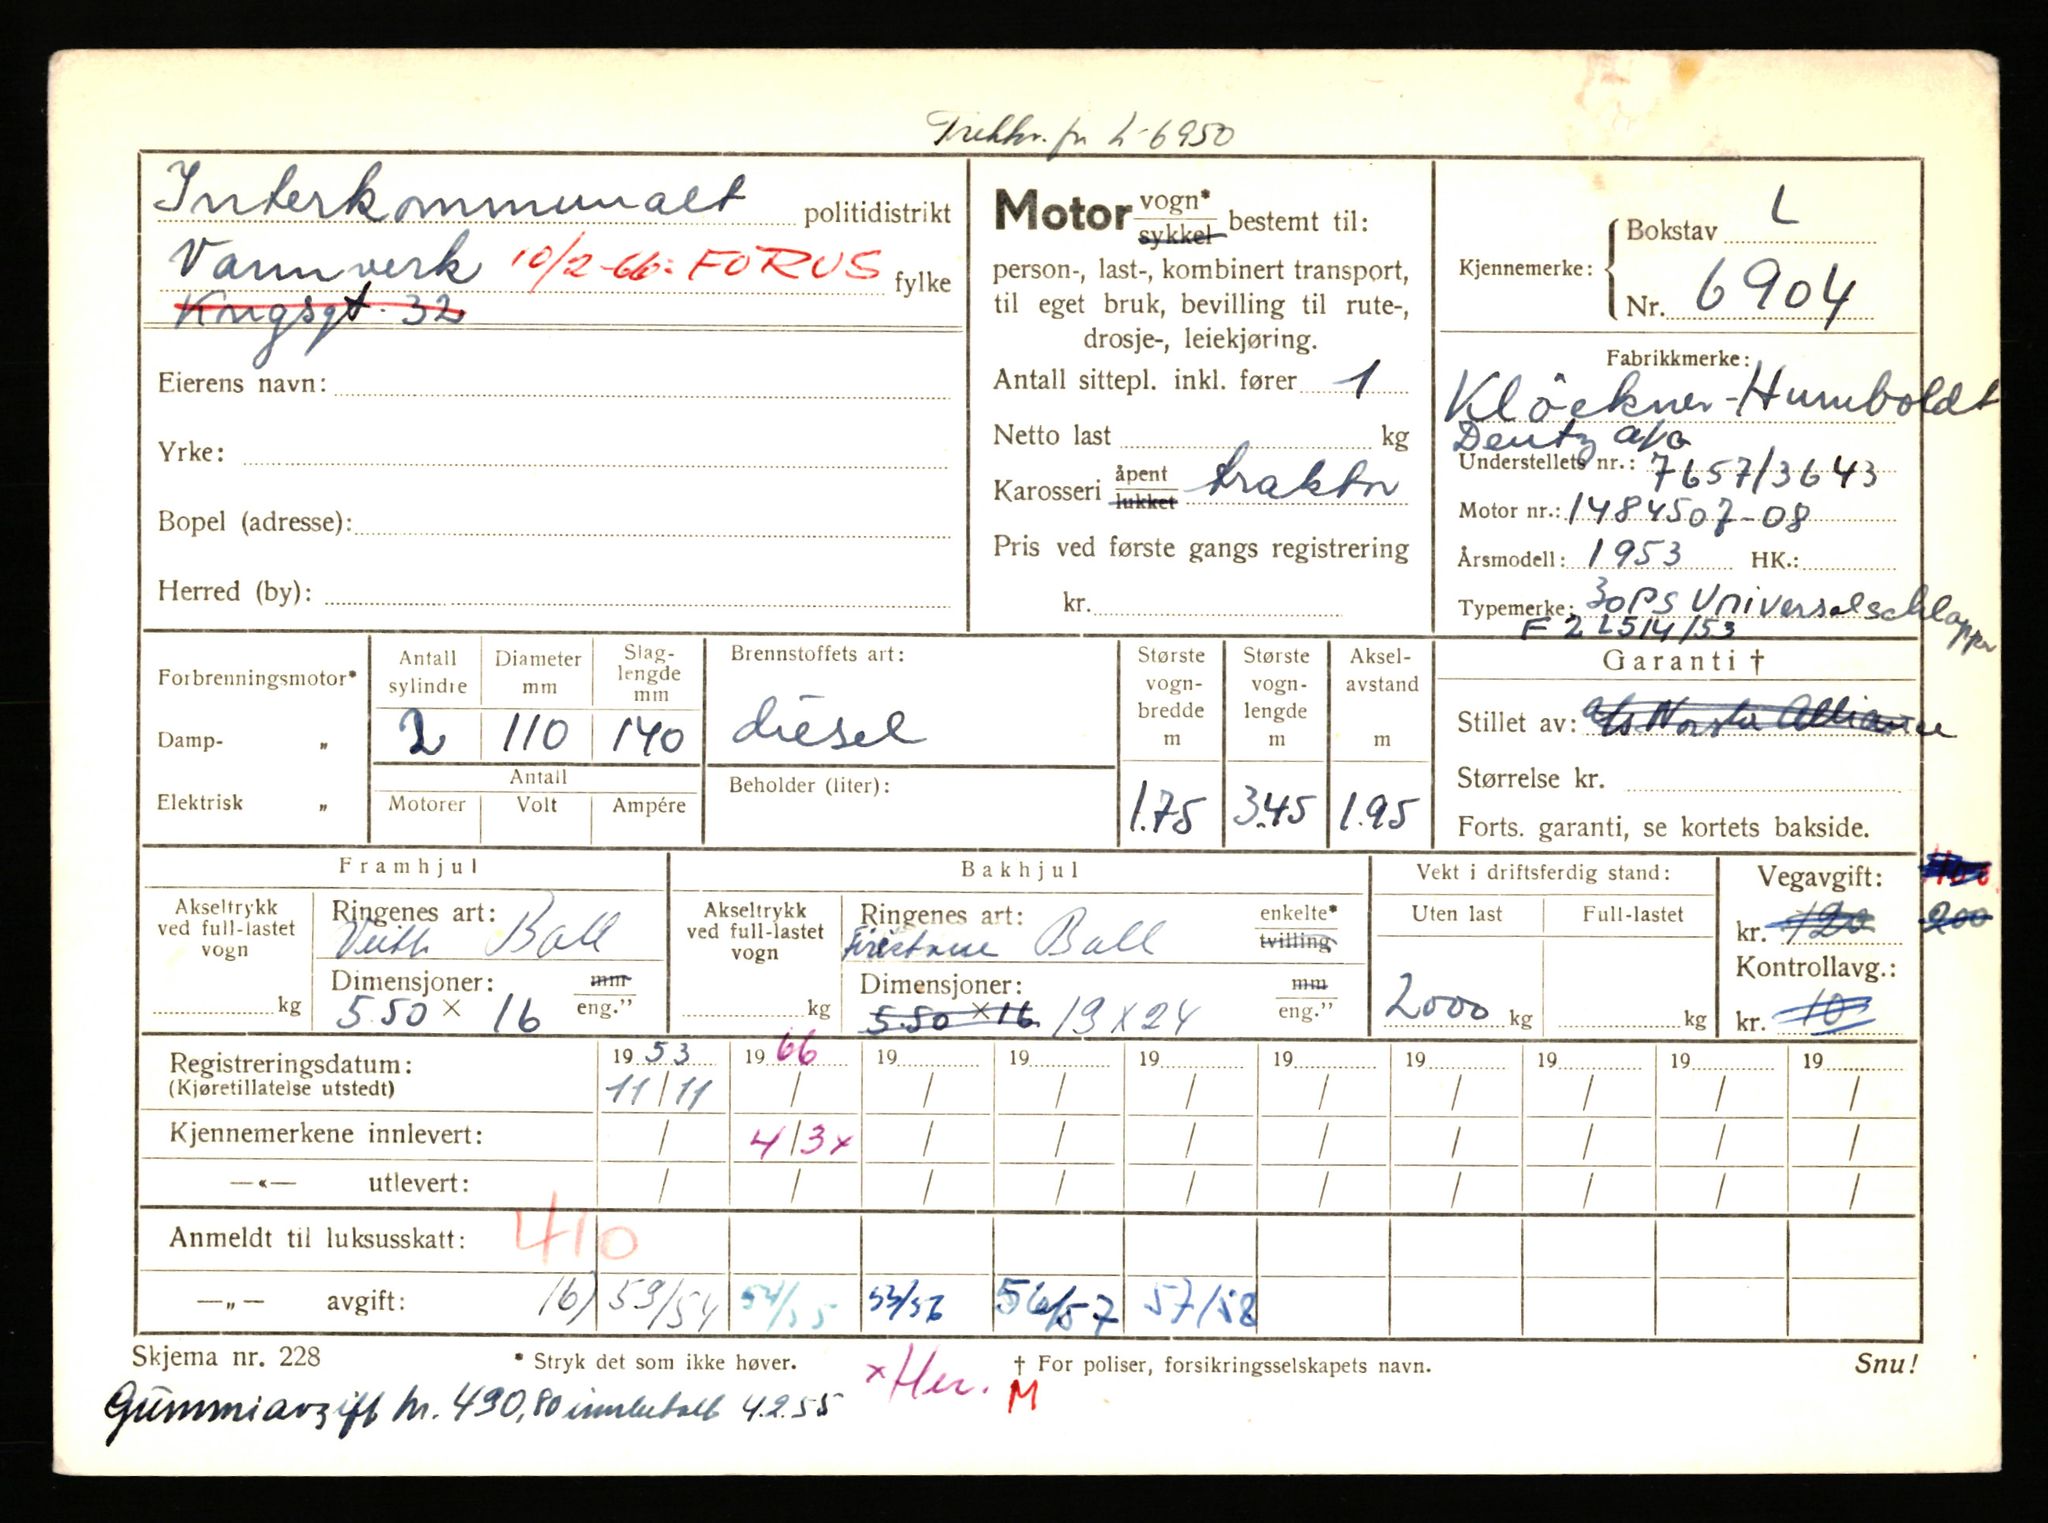 Trekkv. fr L-6950
Interkommunalt politidistrikt
Vannverk 10/2-66: FORUS fylke
Kngsgt. 32
Eierens navn:
Yrke:
Bopel (adresse):
Herred (by):
Motor vogn* sykkel bestemt til:
person-, last-, kombinert transport,
til eget bruk, bevilling til rute-,
drosje-, leiekjøring.
Antall sittepl. inkl. fører 1
Netto last kg
Karosseri åpent lukket traktor
Pris ved første gangs registrering
kr.
Kjennemerke:
Bokstav L
Nr. 6904
Fabrikkmerke:
Klöckner-Humboldt
Deutz
Understellets nr.: 7657/3643
Motor nr.: 1484507-08
Årsmodell: 1953 HK.:
Typemerke: 30PS Universalschlepper
F2L514/53
Forbrenningsmotor*
Damp- „
Elektrisk „
Antall sylindre 2
Diameter mm 110
Slaglengde mm 140
Antall
Motorer Volt Ampére
Brennstoffets art:
diesel
Beholder (liter):
Største vognbredde m 1.75
Største vognlengde m 3.45
Akselavstand m 1.95
Garanti †
Stillet av: a/s Norske Alliance
Størrelse kr.
Forts. garanti, se kortets bakside.
Framhjul
Akseltrykk ved full-lastet vogn kg
Ringenes art:
Veith Ball
Dimensjoner: mm
5.50 x 16 eng."
Bakhjul
Akseltrykk ved full-lastet vogn kg
Ringenes art: enkelte*
Firestone Ball tvilling
Dimensjoner: mm
5.50 x 16 13 x 24 eng."
Vekt i driftsferdig stand:
Uten last Full-lastet
2000 kg kg
Vegavgift:
kr. 120 200
Kontrollavg.:
kr. 10
Registreringsdatum: 19 53 19 66 19 19 19 19 19 19 19 19
(Kjøretillatelse utstedt) 11/11 / / / / / / / / /
Kjennemerkene innlevert: / 4/3x / / / / / / / /
—«— utlevert: / / / / / / / / / /
Anmeldt til luksusskatt: 410
—„— avgift: 16) 53/54 54/55 55/56 56/57 57/58
Skjema nr. 228 * Stryk det som ikke høver. † For poliser, forsikringsselskapets navn. Snu!
x Her. M
Gummiavgift kr. 490,80 innbetalt 4.2.55